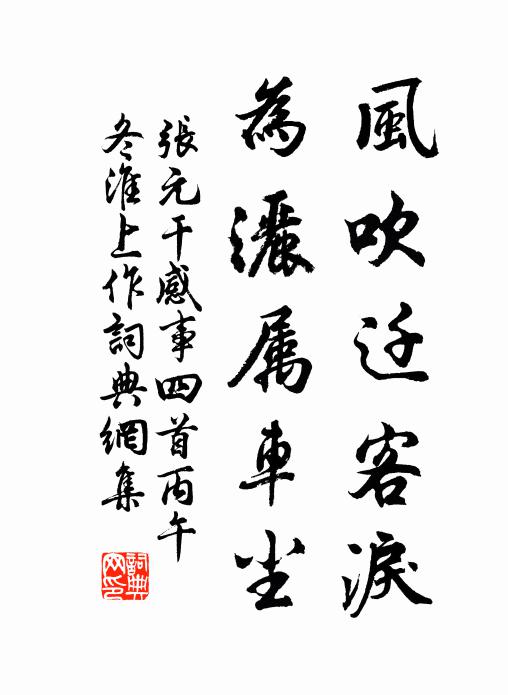 風吹迁客淚
為灑属車尘
張元干感事四首丙午
冬淮上作詞典網集
詞典网印